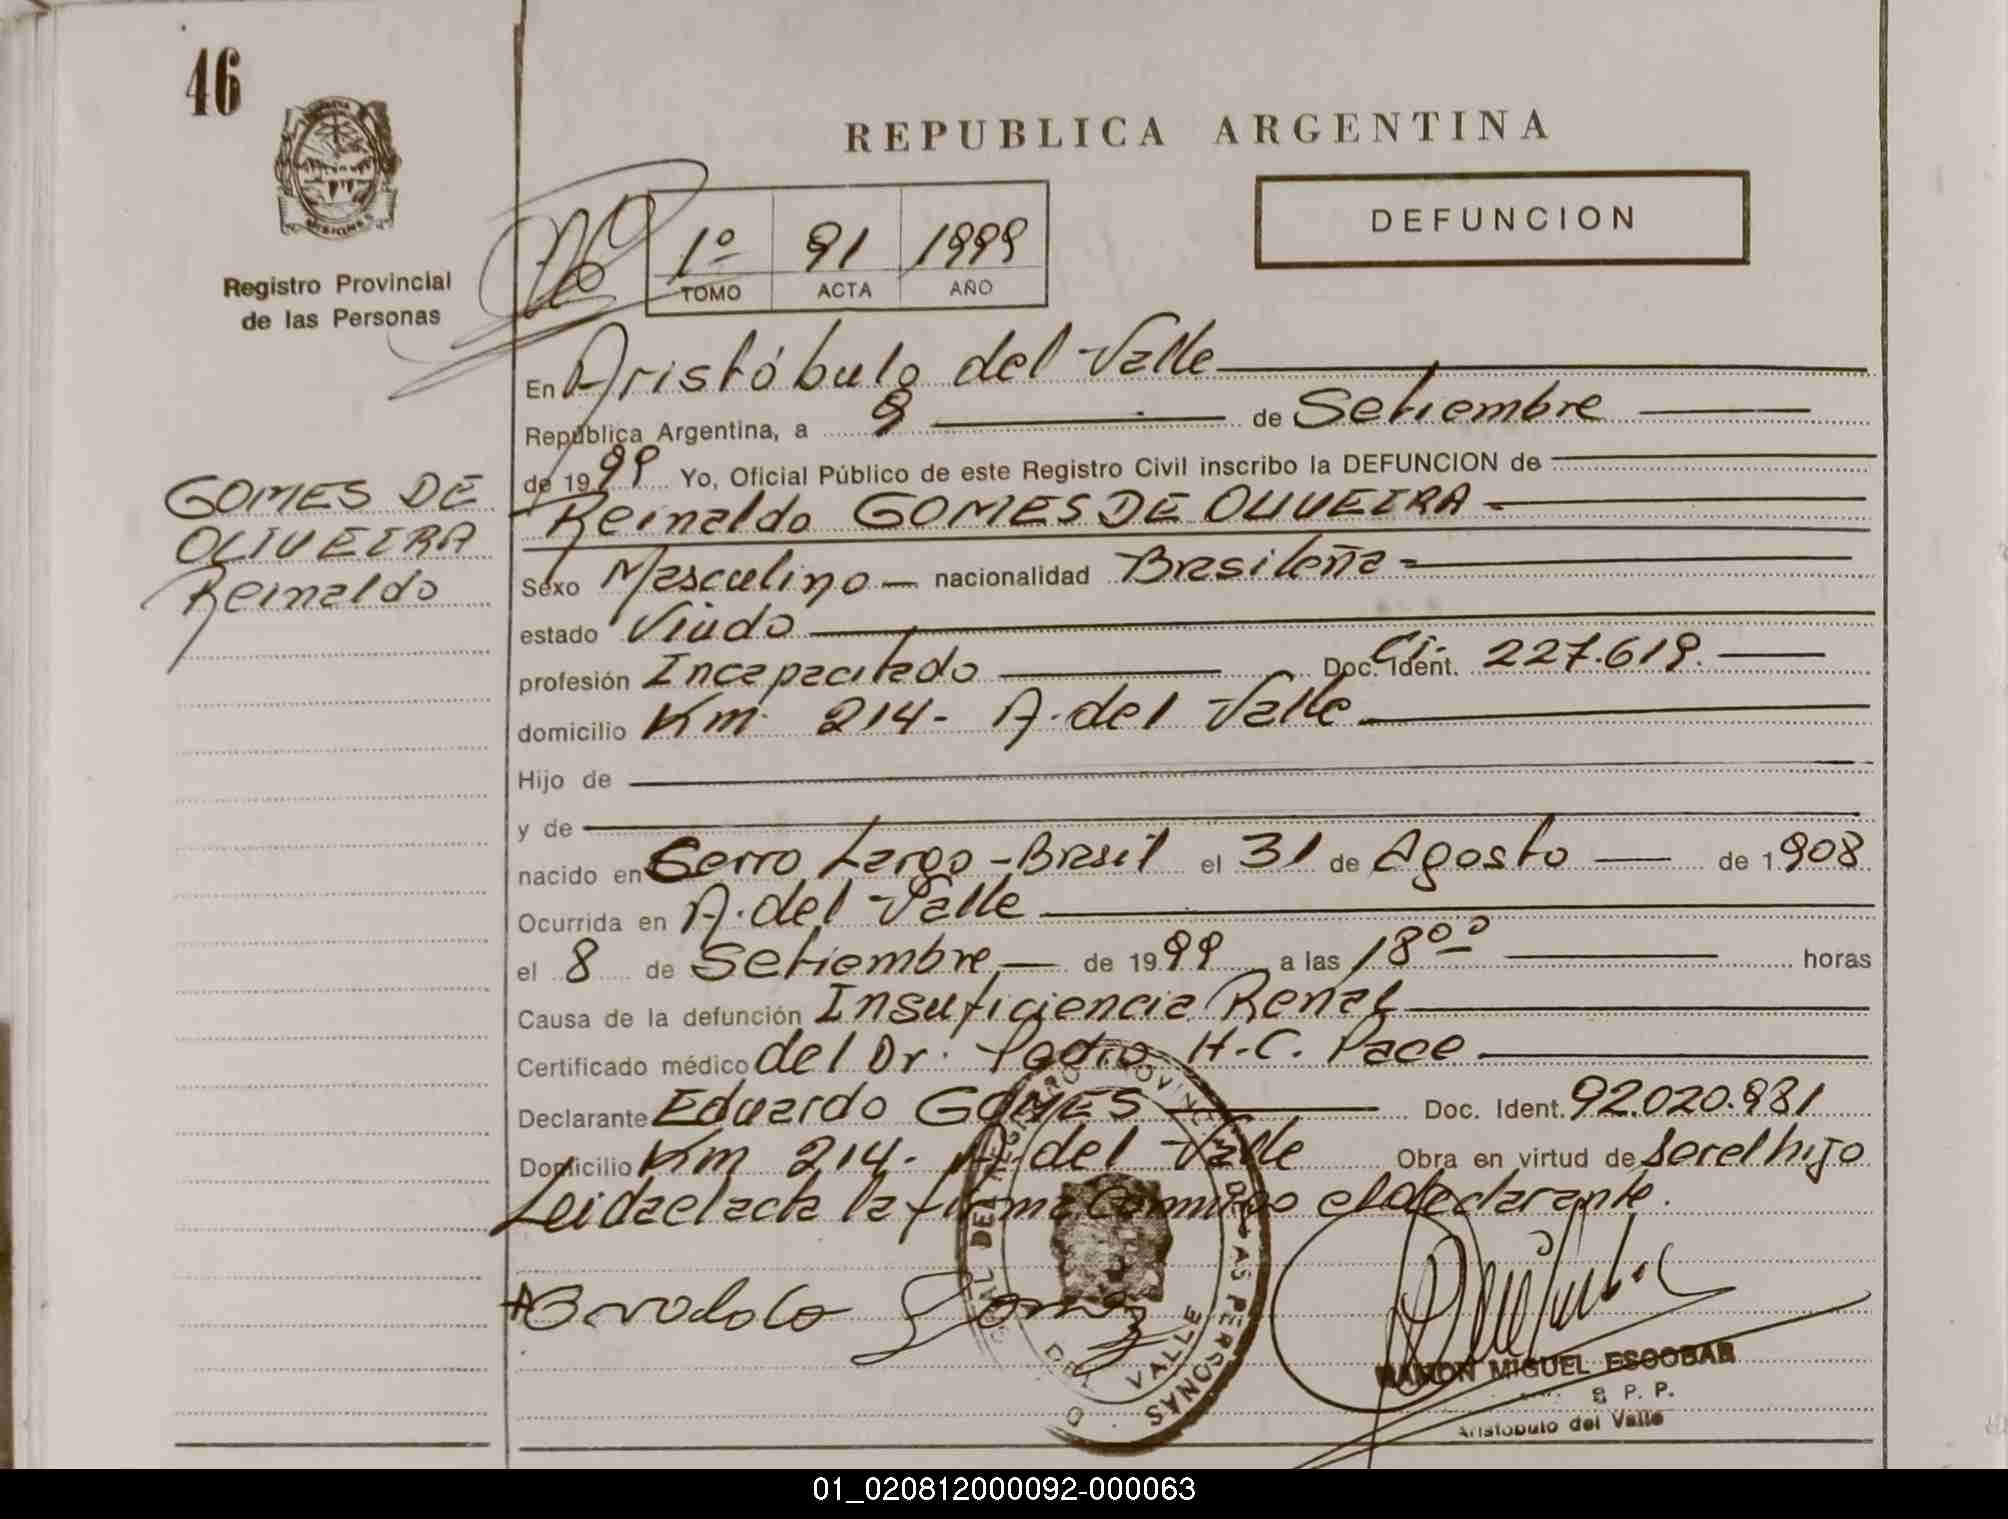 46
REPUBLICA ARGENTINA
DEFUNCION
Registro Provincial
de las Personas
1º 91 1999
TOMO ACTA AÑO
En Aristóbulo del Valle
República Argentina, a 9 de Setiembre
de 1999 Yo, Oficial Público de este Registro Civil inscribo la DEFUNCION de
Reinaldo GOMES DE OLIVEIRA
GOMES DE
OLIVEIRA
Reinaldo
Sexo Masculino nacionalidad Brasileña
estado Viudo
profesión Incapacitado Doc. Ident. CI. 227.619.
domicilio Km. 214- A. del Valle
Hijo de
y de
nacido en Cerro Largo - Brasil el 31 de Agosto de 1.908
Ocurrida en A. del Valle
el 8 de Setiembre de 1999 a las 18ºº horas
Causa de la defunción Insuficiencia Renal
Certificado médico del Dr. Pedro H.C. Pace
Declarante Eduardo GOMES Doc. Ident. 92.020.981
Domicilio Km 214- A. del Valle Obra en virtud de ser el hijo
Leida el acta la firma conmigo el declarante.
Gomez
DEL REGISTRO PROVINCIAL DE LAS PERSONAS
DEL VALLE
RAMON MIGUEL ESCOBAR
P. P.
Aristobulo del Valle
01_020812000092-000063